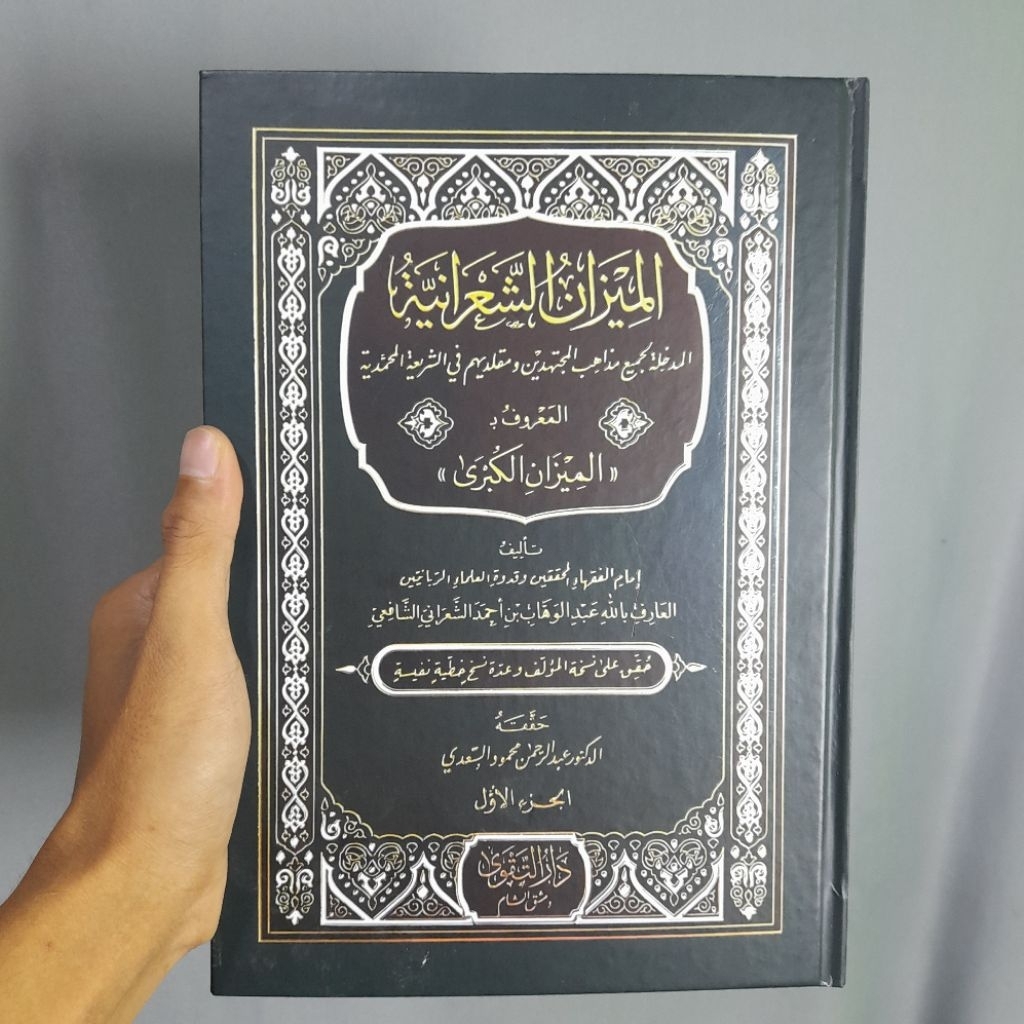 الميْزانُ الشَّعْرَانيَّةُ
المدخلة لجميع مذاهب المجتهديْن ومقلديهم في الشريعة المحمَّدية
المَعْرُوفُ بـ
«الميْزَانِ الكُبْرَىٰ»
تأليفُ
إمام الفقهاء المحققين وقدوة العلماء الربانيّين
العارف بالله عَبْد الوَهَّاب بْنِ أحمَدَ الشَّعَراني الشَّافِعِيِّ
حُقِّق على نسخة المؤلّف وعدّة نسخ خطّيّة نفيسة
حَقَّقَهُ
الدكتور عبد الرحمٰن محمود السّعدي
الجزء الأوّل
دَارُ التَّقوىٰ
دمشق الشام